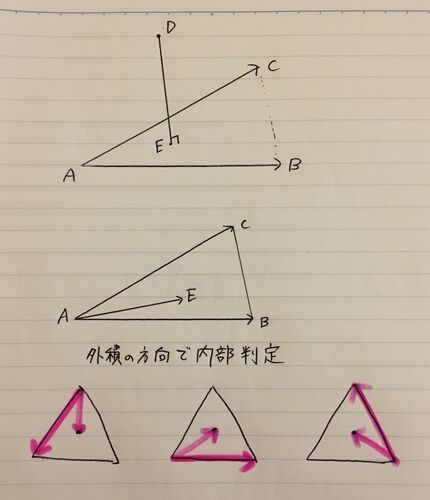 D
C
E
A
B
C
E
A
B
外積の方向で内部判定